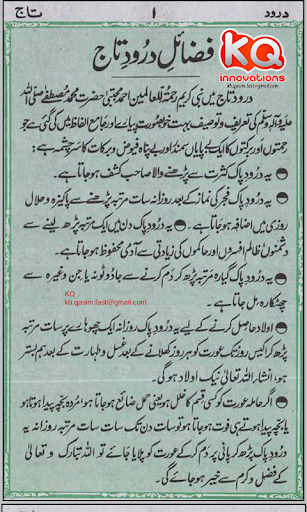 درود
۱
تاج
فضائلِ درُودِ تاج
KQ
innovations
kh.qasim.fast@gmail.com
درودِ تاج میں نبی کریم رحمۃ للعالمین احمد مجتبیٰ حضرت محمد مصطفےٰ صلی اللہ
علیہ وآلہٖ وسلم کی تعریف و توصیف بہت خوبصورت پیرائے اور جامع الفاظ میں کی گئی ہے جو
رحمتوں اور برکتوں کا ایک بے پایاں سمندر اور بے پناہ فیوض و برکات کا سرچشمہ ہے:
یہ درُودِ پاک کثرت سے پڑھنے والا صاحبِ کشف ہو جاتا ہے۔
یہ درُودِ پاک فجر کی نماز کے بعد روزانہ سات مرتبہ پڑھنے سے پاکیزہ و حلال
روزی میں اضافہ ہو جاتا ہے۔ یہ درُودِ پاک دن میں ایک مرتبہ پڑھ لینے سے
دشمنوں، ظالم افسروں اور حاکموں کی زیادتی سے آدمی محفوظ ہو جاتا ہے۔
یہ درُودِ پاک گیارہ مرتبہ پڑھ کر دَم کرنے سے جادو ٹونہ یا جن وغیرہ سے
چھٹکارہ مل جاتا ہے۔
KQ
kh.qasim.fast@gmail.com
اولاد حاصل کرنے کے لیے یہ درُودِ پاک روزانہ ایک چھوہارے پر سات مرتبہ
پڑھ کر اکیس روز تک عورت کو ہر روز کھلانے کے بعد غسل و طہارت کے بعد ہم بستر
ہو، انشاء اللہ تعالیٰ نیک اولاد ہو گی۔
اگر حاملہ عورت کو کسی قسم کا خلل ہو یعنی حمل ضائع ہو جاتا ہو، مُردہ بچہ پیدا ہوتا ہو
یا بچہ پیدا ہوتے ہی فوت ہو جاتا ہو تو سات دن تک سات سات مرتبہ روزانہ یہ
درُودِ پاک پڑھ کر پانی پر دم کر کے عورت کو پلایا جائے تو اللہ تبارک و تعالیٰ
کے فضل و کرم سے خیر ہو جائے گی۔